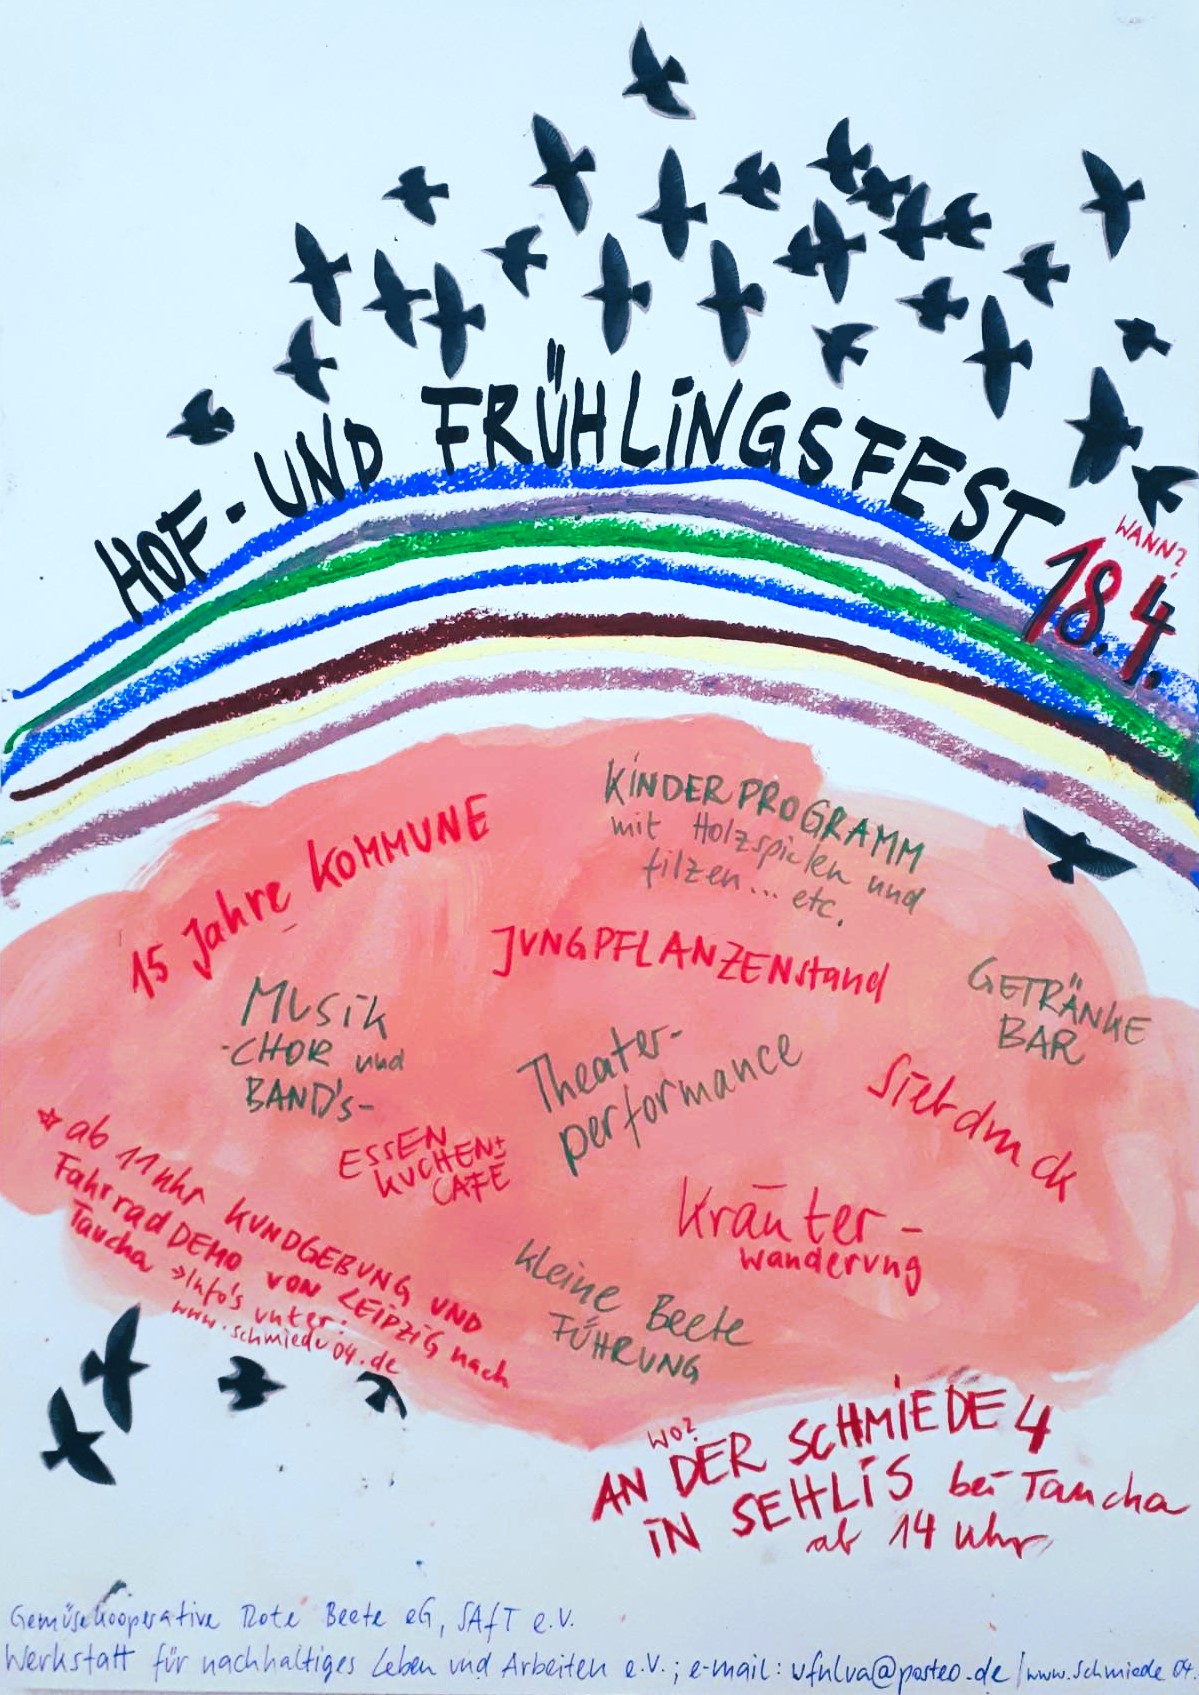 HOF- UND FRÜHLINGSFEST
WANN?
18.4.
KINDERPROGRAMM
mit Holzspielen und
filzen... etc.
15 Jahre KOMMUNE
JUNGPFLANZENstand
GETRÄNKE
BAR
MUSIK
-CHOR und
BAND's-
Theater-
performance
Siebdruck
ESSEN
KUCHEN+
CAFE
Kräuter-
wanderung
☆ ab 11 Uhr KUNDGEBUNG UND
FahrradDEMO VON LEIPZIG nach
Taucha >Info's unter:
www.schmiede04.de
kleine Beete
FÜHRUNG
WO?
AN DER SCHMIEDE 4
IN SEHLIS bei Taucha
ab 14 Uhr
Gemüsekooperative Rote Beete eG, SAfT e.V.
Werkstatt für nachhaltiges Leben und Arbeiten e.V.; e-mail: wfnlva@posteo.de/www.schmiede04.